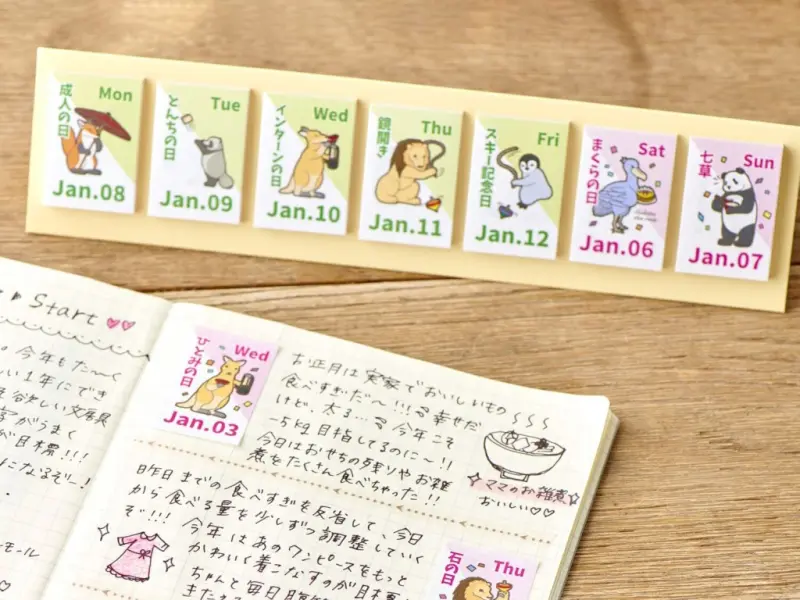 Mon
成人の日
Jan.08
Tue
とんちの日
Jan.09
Wed
インターンの日
Jan.10
Thu
鏡開き
Jan.11
Fri
スキー記念日
Jan.12
Sat
まくらの日
Jan.06
Sun
七草
Jan.07
Start
今年もた〜く
い1年にでき
欲しい文房具
字がうまく
が目標!!!
になるぞー!
モール
Wed
ひとみの日
Jan.03
お正月は実家でおいしいもの
食べすぎだ〜!!! 幸せだ
けど、太る… 今年こそ
-5kg目指してるのに〜!!
今日はおせちの残りやお雑
煮をたくさん食べちゃった!!
ママのお雑煮
おいしい♡♡
昨日までの食べすぎを反省して、今日
から食べる量を少しずつ調整していく
ぞ!!! 今年はあのワンピースをもっと
かわいく着こなすのが目標
ちゃんと毎日
Thu
石の日